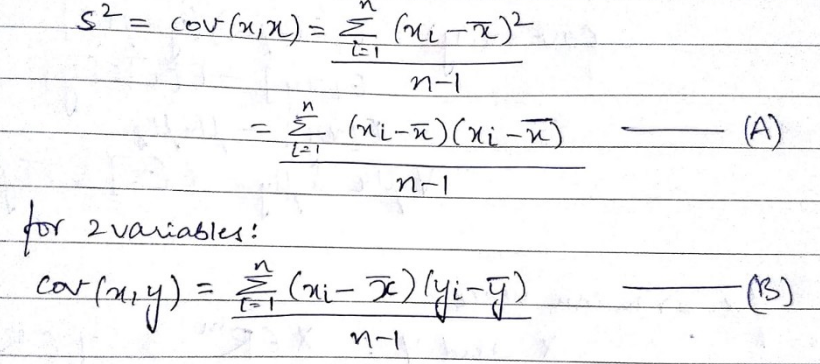 s² = cov(x,x) = Σ_{i=1}^{n} (xi - x̄)² / n-1
= Σ_{i=1}^{n} (xi - x̄)(xi - x̄) / n-1 —— (A)
for 2 variables:
cov(x,y) = Σ_{i=1}^{n} (xi - x̄)(yi - ȳ) / n-1 —— (B)